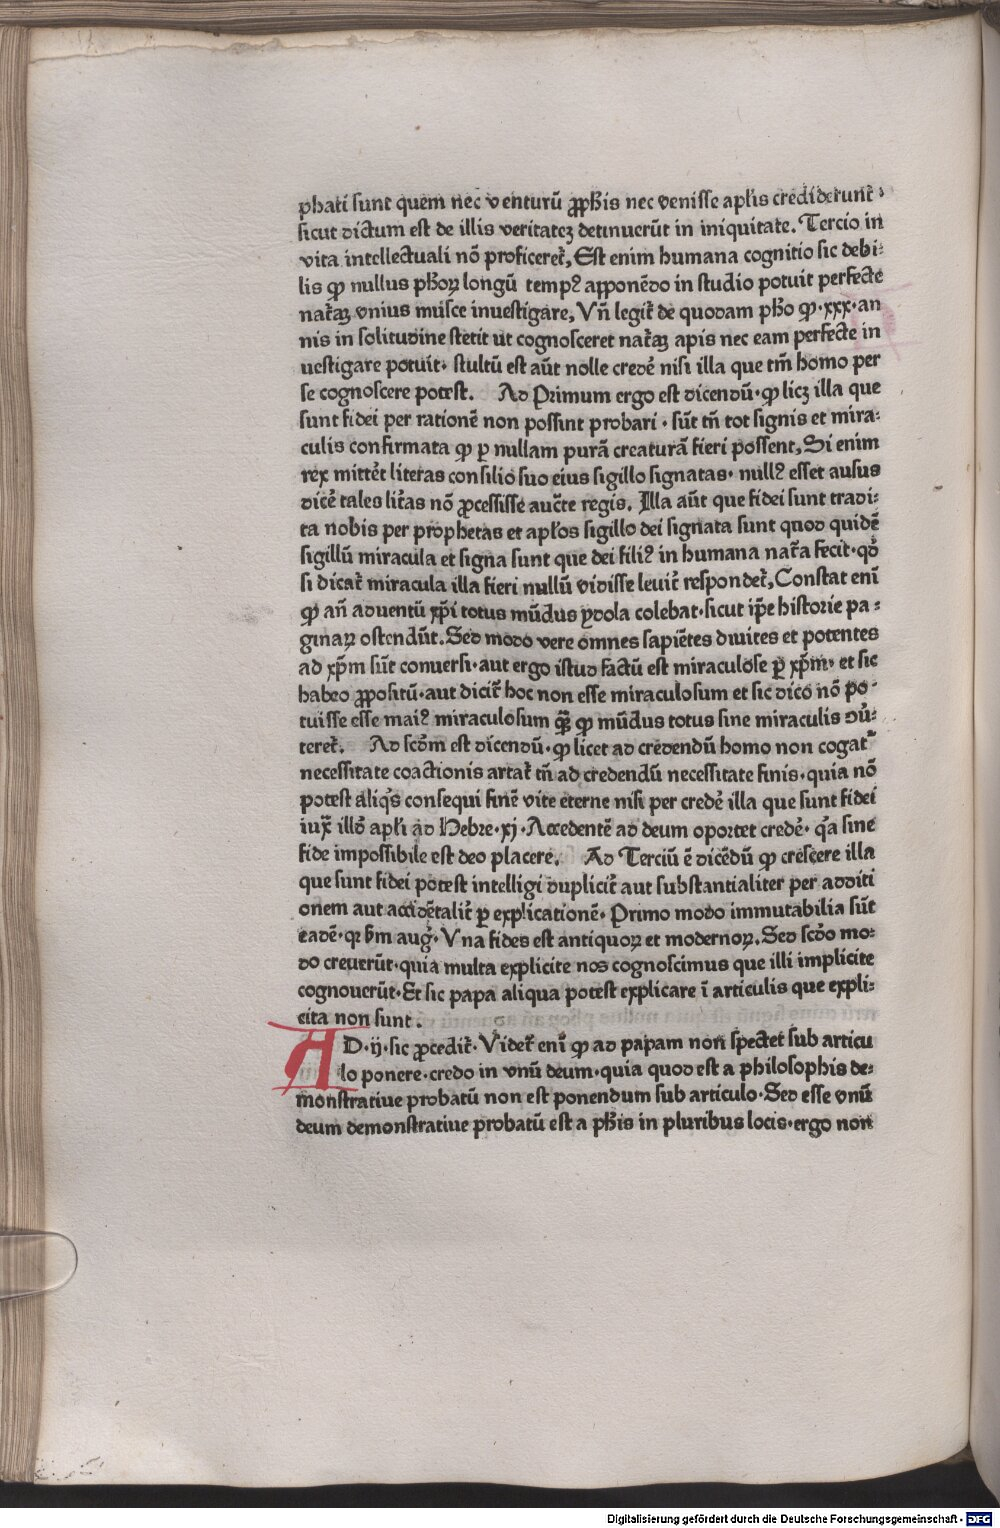 phati sunt quem nec venturū ꝓph̄is nec venisse apl̄is crediderunt̄·
sicut dictum est de illis veritateꝫ detinuerūt in iniquitate. Tercio in
vita intellectuali nō proficeret̄, Est enim humana cognitio sic debi-
lis ꝙ nullus ph̄oꝝ longū tempꝰ apponēdo in studio potuit perfecte
nat̄aꝫ vnius musce inuestigare, Vn̄ legit̄ de quodam ph̄o ꝙ·xxx·an
nis in solitudine stetit ut cognosceret nat̄aꝫ apis nec eam perfecte in
uestigare potuit· stultū est aūt nolle credē nisi illa que tm̄ homo per
se cognoscere potest. Ad Primum ergo est dicendū·ꝙ licꝫ illa que
sunt fidei per rationē non possint probari·sūt tn̄ tot signis et mira-
culis confirmata ꝙ ꝑ nullam purā creaturā fieri possent, Si enim
rex mittēt literas consilio suo eius sigillo signatas·nullꝰ esset ausus
dicē tales lit̄as nō ꝓcessisse auct̄e regis. Illa aūt que fidei sunt tradi-
ta nobis per prophetas et apl̄os sigillo dei signata sunt quod quidē
sigillū miracula et signa sunt que dei filiꝰ in humana nat̄a fecit·qō
si dicat̄ miracula illa fieri nullū vidisse leuit̄ respondet̄, Constat enī
ꝙ an̄ aduentū xp̄i totus mūdus ydola colebat·sicut ip̄e historie pa-
ginaꝝ ostendūt. Sed modo vere omnes sapiētes diuites et potentes
ad xp̄m sūt conuersi·aut ergo istud factū est miraculose ꝑ xp̄m·et sic
habeo ꝓpositū·aut dicit̄ hoc non esse miraculosum et sic dico nō po-
tuisse esse maiꝰ miraculosum qȝ̄ ꝙ mūdus totus sine miraculis ɔū-
teret̄. Ad scd̄m est dicendū·ꝙ licet ad credendū homo non cogat̄
necessitate coactionis artat̄ tn̄ ad credendū necessitate finis·quia nō
potest aliq̄s consequi finē vite eterne nisi per credē illa que sunt fidei
iux̄ illō apl̄i ad Hebre·xj·Accedentē ad deum oportet credē·q̄a sine
fide impossibile est deo placere. Ad Terciū ē dicēdū ꝙ crescere illa
que sunt fidei potest intelligi duplicit̄ aut substantialiter per additi
onem aut accidētalit̄ ꝑ explicationē·Primo modo immutabilia sūt
eadē·qꝛ b̄m aug̉·Vna fides est antiquoꝝ et modernoꝝ. Sed scd̄o mo-
do creuerūt·quia multa explicite nos cognoscimus que illi implicite
cognouerūt·Et sic papa aliqua potest explicare ī articulis que expli-
cita non sunt.
AD·ij·sic ꝓcedit̄·Videt̄ enī ꝙ ad papam non spectet sub articu
lo ponere·credo in vnū deum·quia quod est a philosophis de-
monstratiue probatū non est ponendum sub articulo·Sed esse vnū
deum demonstratiue probatū est a ph̄is in pluribus locis·ergo non
Digitalisierung gefördert durch die Deutsche Forschungsgemeinschaft - DFG